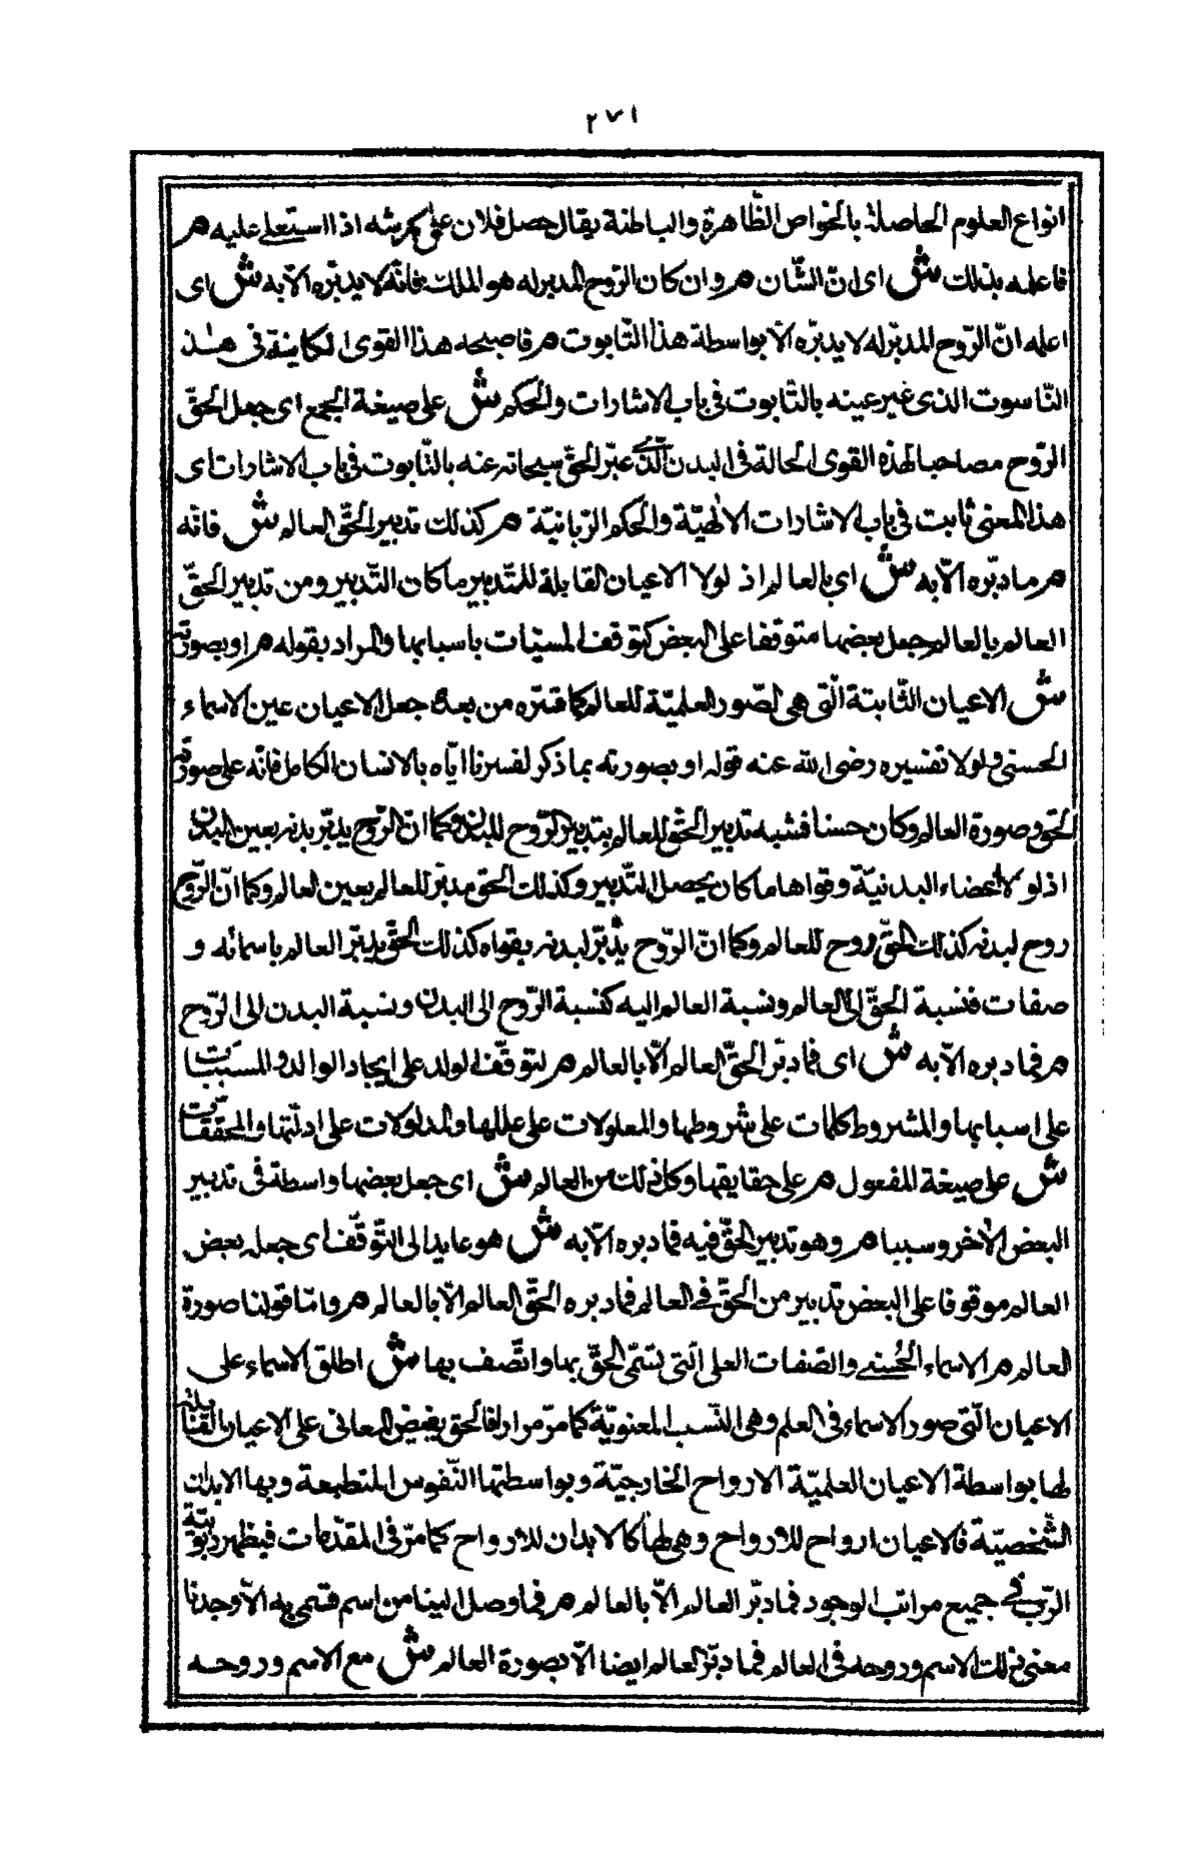 ٢٧١
انواع العلوم الحاصلة بالخواص الظّاهرة والباطنة يقال حصل فلان على عرشه اذا استعلى عليه م
فاعلمه بذلك ش اى انّ الشّان م وان كان الرّوح المدبر له هو الملك فانّه لا يدبّره الّا به ش اى
اعلمه انّ الرّوح المدبّر له لا يدبّره الّا بواسطة هذا التّابوت م فاصحبه هذا القوى الكاينة فى هذا
النّاسوت الذى عبر عنه بالتّابوت فى باب الاشارات والحكم ش على صيغة الجمع اى جعل الحقّ
الرّوح مصاحبا لهذه القوى الحالة فى البدن الّذى عبّر الحقّ سبحانه عنه بالتّابوت فى باب الاشارات اى
هذا المعنى ثابت فى باب الاشارات الالهيّة والحكم الرّبانيّة م كذلك تدبير الحقّ العالم ش فانّه
م ما دبّره الّا به ش اي بالعالم اذ لولا الاعيان القابلة للتّدبير ما كان التّدبير ومن تدبير الحقّ
العالم بالعالم جعل بعضها متوقفا على البعض كتوقف المسبّبات باسبابها والمراد بقوله م او بصورته
ش الاعيان الثّابتة الّتى هى الصّور العلميّة للعالم كما قرّره من بعد جعل الاعيان عين الاسماء
الحسنى ولولا تفسيره رضى الله عنه قوله او بصورته بما ذكر لفسرنا ايّاه بالانسان الكامل فانّه على صورة
الحق وصورة العالم وكان حسنا فشبه تدبير الحقّ للعالم بتدبير الرّوح للبدن وكما انّ الرّوح يدبّر بدنه بعين البدن
اذ لولا الاعضاء البدنيّة وقواها ما كان يحصل التّدبير وكذلك الحق مدبّر للعالم بعين العالم وكما انّ الرّوح
روح لبدنه كذلك الحقّ روح للعالم وكما انّ الرّوح يدبّر لبدنه بقواه كذلك الحقّ يدبّر العالم باسمائه و
صفات فنسبة الحقّ الى العالم ونسبة العالم اليه كنسبة الرّوح الى البدن ونسبة البدن الى الرّوح
م فما دبره الّا به ش اى فما دبّر الحقّ العالم الّا بالعالم م لتوقّف الولد على ايجاد الوالد والمسببات
على اسبابها والمشروط كالمات على شروطها والمعلولات على عللها والمدلولات على ادلّتها والمحققات
ش على صيغة المفعول م على حقايقها وكل ذلك من العالم ش اى جعل بعضها واسطة فى تدبير
البعض الاخر وسببا م وهو تدبير الحقّ فيه فما دبره الّا به ش هو عايد الى التّوقّف اى جعله بعض
العالم موقوفا على البعض تدبير من الحقّ فى العالم فما دبره الحقّ العالم الّا بالعالم م وامّا قولنا صورة
العالم م الاسماء الحسنى والصّفات العلى الّتى تسمّى الحقّ بها واتّصف بها ش اطلق الاسماء على
الاعيان الّتى صور الاسماء فى العلم وهى النّسب المعنويّة كما مرّ مرارا فالحق يفيض المعانى على الاعيان القابلة
لها بواسطة الاعيان العلميّة الارواح الخارجيّة وبواسطتها النّفوس المنطبعة وبها الابدان
الشّخصيّة فالاعيان ارواح للارواح وهى لها كالابدان للارواح كما مرّ فى المقدّمات فيظهر ربوبيّة
الرّب فى جميع مراتب الوجود فما دبّر العالم الّا بالعالم م فما وصل الينا من اسم تسمى به الّا وجدنا
معنى ذلك الاسم وروحه فى العالم فما دبّر العالم ايضا الّا بصورة العالم ش مع الاسم وروحه